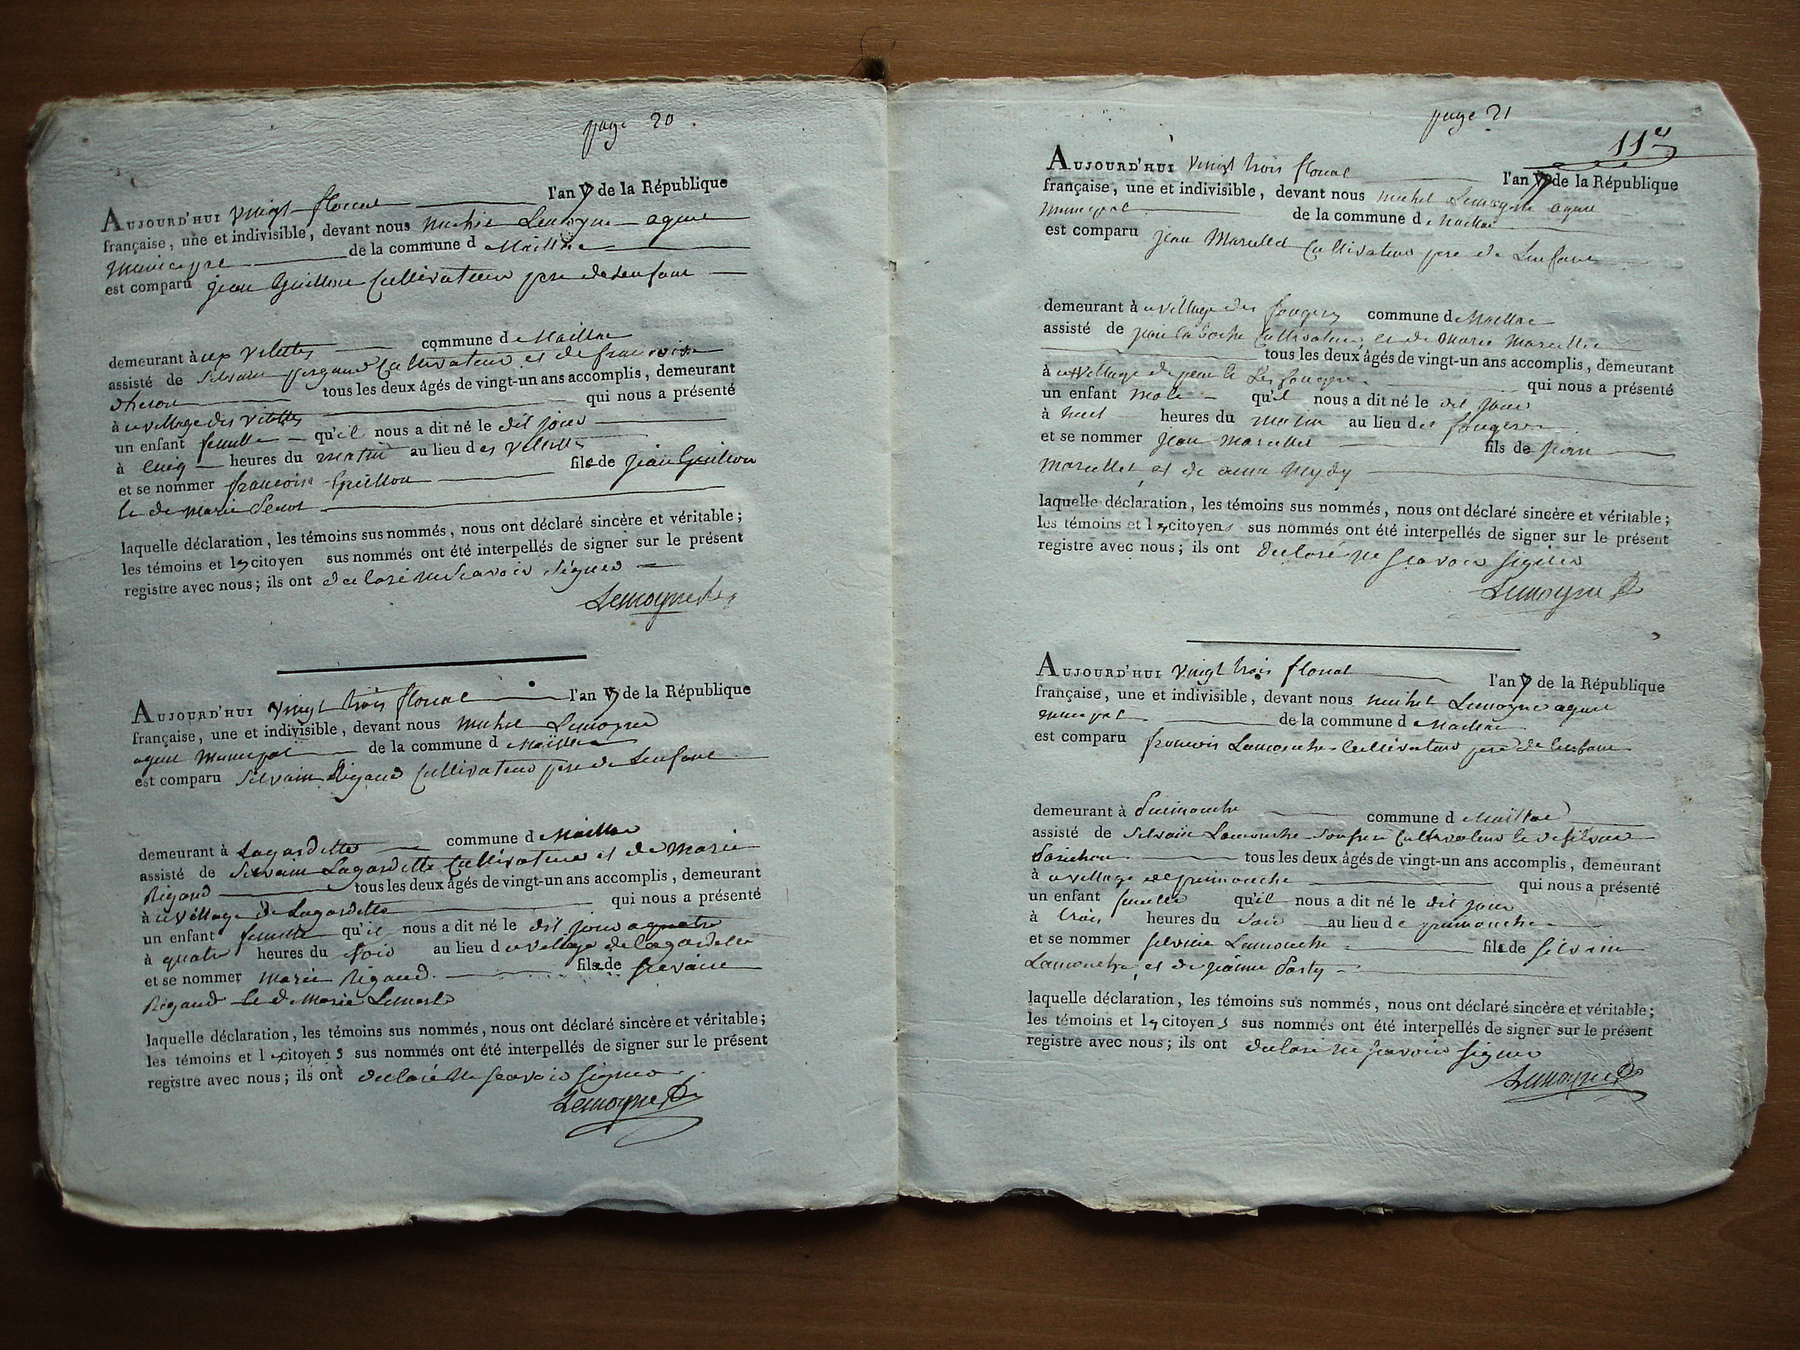 page 20
AUJOURD'HUI vingt floreal l'an V de la République
française, une et indivisible, devant nous michel Lemoyne agent
municipal de la commune d Maillac
est comparu jean Guillon Cultivateur pere de Lenfant
demeurant à commune d Maillac
assisté de Silvain Cultivateur et de francoise
tous les deux âgés de vingt-un ans accomplis, demeurant
à village des qui nous a présenté
un enfant femelle qu'il nous a dit né le dit jour
à cinq heures du matin au lieu des
et se nommer francoise Guillon fils de jean Guillon
et de marie
laquelle déclaration, les témoins sus nommés, nous ont déclaré sincère et véritable ;
les témoins et les citoyen sus nommés ont été interpellés de signer sur le présent
registre avec nous ; ils ont declaré ne scavoir signer
Lemoyne
AUJOURD'HUI vingt trois floreal l'an V de la République
française, une et indivisible, devant nous michel Lemoyne
agent municipal de la commune d Maillac
est comparu Silvain Rigaud Cultivateur pere de Lenfant
demeurant à Lagardette commune d Maillac
assisté de Silvain Lagardette Cultivateur et de Marie
Rigaud tous les deux âgés de vingt-un ans accomplis, demeurant
à village de Lagardette qui nous a présenté
un enfant femelle qu'il nous a dit né le dit jour a quatre
à quatre heures du soir au lieu d village de lagardette
et se nommer marie Rigaud fils de silvain
Rigaud et de Marie
laquelle déclaration, les témoins sus nommés, nous ont déclaré sincère et véritable ;
les témoins et les citoyens sus nommés ont été interpellés de signer sur le présent
registre avec nous ; ils ont declaré ne scavoir signer
Lemoyne
page 21
11e
AUJOURD'HUI vingt trois floreal l'an V de la République
française, une et indivisible, devant nous michel Lemoyne agent
municipal de la commune d Maillac
est comparu jean Marcillet Cultivateur pere de Lenfant
demeurant à village des fougere commune d Maillac
assisté de jean Cultivateur et de Marie
tous les deux âgés de vingt-un ans accomplis, demeurant
à village de qui nous a présenté
un enfant male qu'il nous a dit né le dit jour
à heures du matin au lieu des fougere
et se nommer jean Marcillet fils de jean
Marcillet et de anne
laquelle déclaration, les témoins sus nommés, nous ont déclaré sincère et véritable ;
les témoins et les citoyens sus nommés ont été interpellés de signer sur le présent
registre avec nous ; ils ont declaré ne scavoir signer
Lemoyne
AUJOURD'HUI vingt trois floreal l'an V de la République
française, une et indivisible, devant nous michel Lemoyne agent
municipal de la commune d Maillac
est comparu francois Lamouche Cultivateur pere de Lenfant
demeurant à commune d Maillac
assisté de Silvain Lamouche son frere Cultivateur et de silvine
tous les deux âgés de vingt-un ans accomplis, demeurant
à village de qui nous a présenté
un enfant femelle qu'il nous a dit né le dit jour
à trois heures du soir au lieu de
et se nommer silvine Lamouche fils de silvain
Lamouche et de jeanne
laquelle déclaration, les témoins sus nommés, nous ont déclaré sincère et véritable ;
les témoins et les citoyens sus nommés ont été interpellés de signer sur le présent
registre avec nous ; ils ont declaré ne scavoir signer
Lemoyne